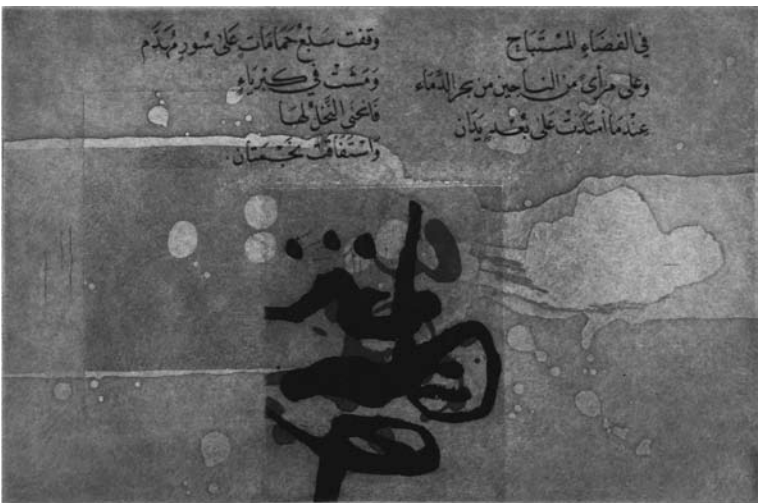 في الفَضَاءِ المُسْتَبَاحْ
وعلى مرأىً من الناجين من بحر الدِّمَاء
عِنْدَمَا امتَدَّتْ عَلى بُعْدٍ يَدَان
وقفت سَبْعُ حَمَامَاتٍ عَلىٰ سُورٍ مُهَدَّم
وَمَشَتْ في كِبْرِيَاءٍ
فَانحَنى النَّخلُ لهَا
وَاسْتَفَاقَتْ نَجْمَتَان.